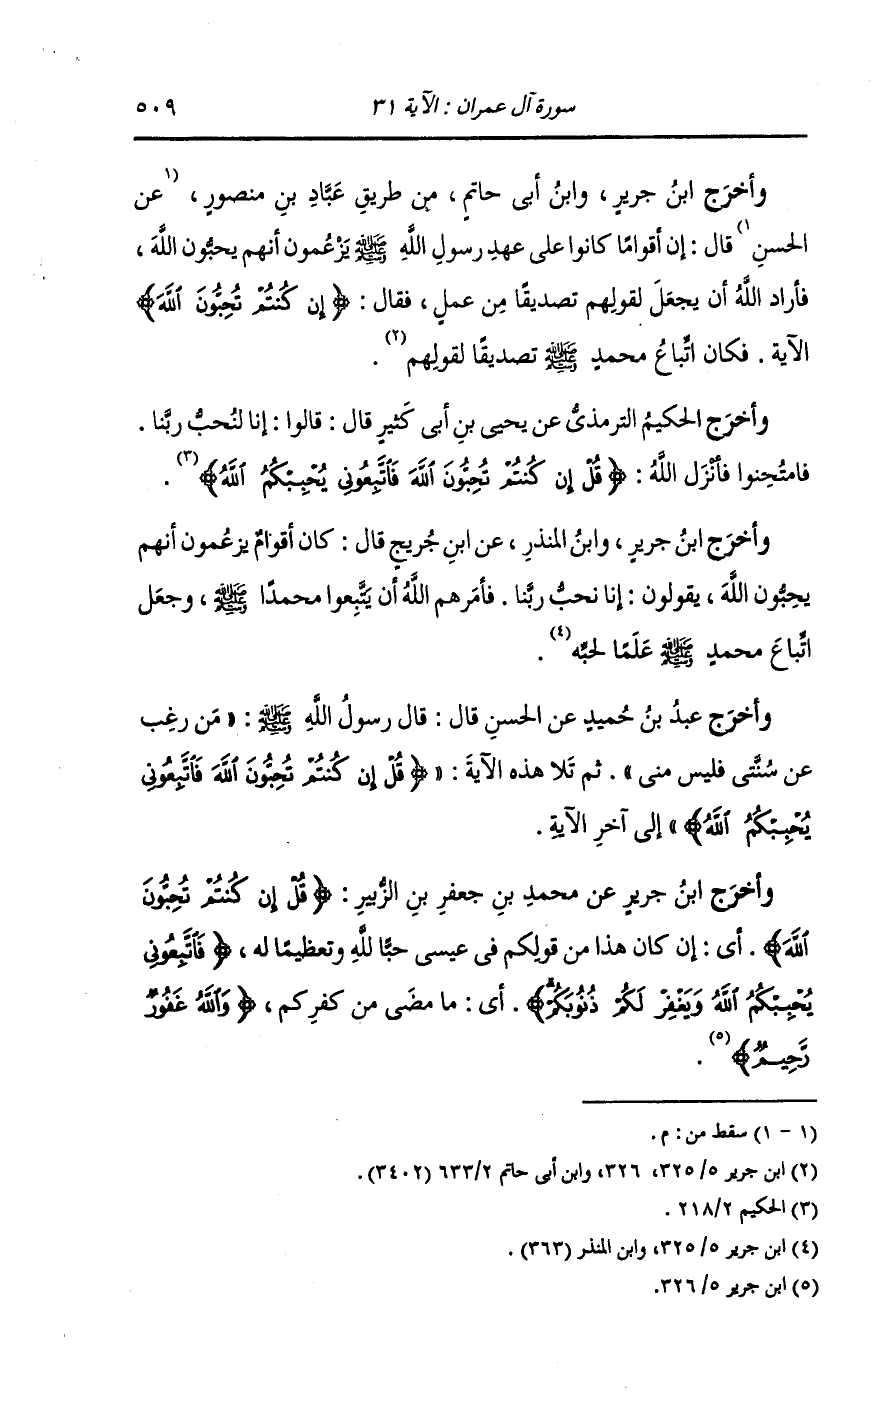 سورة آل عمران : الآية ٣١ ٥٠٩
وأخرَج ابنُ جريرٍ ، وابنُ أبى حاتمٍ ، مِن طريقِ عَبَّادِ بنِ منصورٍ ، (١عن
الحسنِ١) قال : إن أقوامًا كانوا على عهدِ رسولِ اللَّهِ ﷺ يَزْعُمون أنهم يحبُّون اللَّهَ ،
فأراد اللَّهُ أن يجعَلَ لقولِهم تصديقًا مِن عملٍ ، فقال : ﴿ إِن كُنتُمْ تُحِبُّونَ ٱللَّهَ﴾
الآية . فكان اتِّباعُ محمدٍ ﷺ تصديقًا لقولِهم(٢) .
وأخرَج الحكيمُ الترمذىُّ عن يحيى بنِ أبى كَثيرٍ قال : قالوا : إنا لنُحبُّ ربَّنا .
فامتُحِنوا فأنْزَل اللَّهُ : ﴿ قُلْ إِن كُنتُمْ تُحِبُّونَ ٱللَّهَ فَٱتَّبِعُونِى يُحْبِبْكُمُ ٱللَّهُ﴾(٣) .
وأخرَج ابنُ جريرٍ ، وابنُ المنذرِ ، عن ابنِ جُريجٍ قال : كان أقوامٌ يزعُمون أنهم
يحِبُّون اللَّهَ ، يقولون : إنا نحبُّ ربَّنا . فأمَرهم اللَّهُ أن يَتَّبِعوا محمدًا ﷺ ، وجعَل
اتِّباعَ محمدٍ ﷺ عَلَمًا لحبِّه(٤) .
وأخرَج عبدُ بنُ حُميدٍ عن الحسنِ قال : قال رسولُ اللَّهِ ﷺ : « مَن رغِب
عن سُنَّتى فليس منى » . ثم تَلا هذه الآيةَ : « ﴿ قُلْ إِن كُنتُمْ تُحِبُّونَ ٱللَّهَ فَٱتَّبِعُونِى
يُحْبِبْكُمُ ٱللَّهُ﴾ » إلى آخرِ الآيةِ .
وأخرَج ابنُ جريرٍ عن محمدِ بنِ جعفرِ بنِ الزُّبيرِ : ﴿ قُلْ إِن كُنتُمْ تُحِبُّونَ
ٱللَّهَ﴾ . أى : إن كان هذا من قولِكم فى عيسى حبًّا للَّهِ وتعظيمًا له ، ﴿ فَٱتَّبِعُونِى
يُحْبِبْكُمُ ٱللَّهُ وَيَغْفِرْ لَكُمْ ذُنُوبَكُمْۗ﴾ . أى : ما مضَى من كفرِكم ، ﴿ وَٱللَّهُ غَفُورٌ
رَّحِيمٌ﴾(٥) .
(١ - ١) سقط من : م .
(٢) ابن جرير ٥/ ٣٢٥، ٣٢٦، وابن أبى حاتم ٦٣٣/٢ (٣٤٠٢) .
(٣) الحكيم ٢١٨/٢ .
(٤) ابن جرير ٥/ ٣٢٥، وابن المنذر (٣٦٣) .
(٥) ابن جرير ٥/ ٣٢٦.